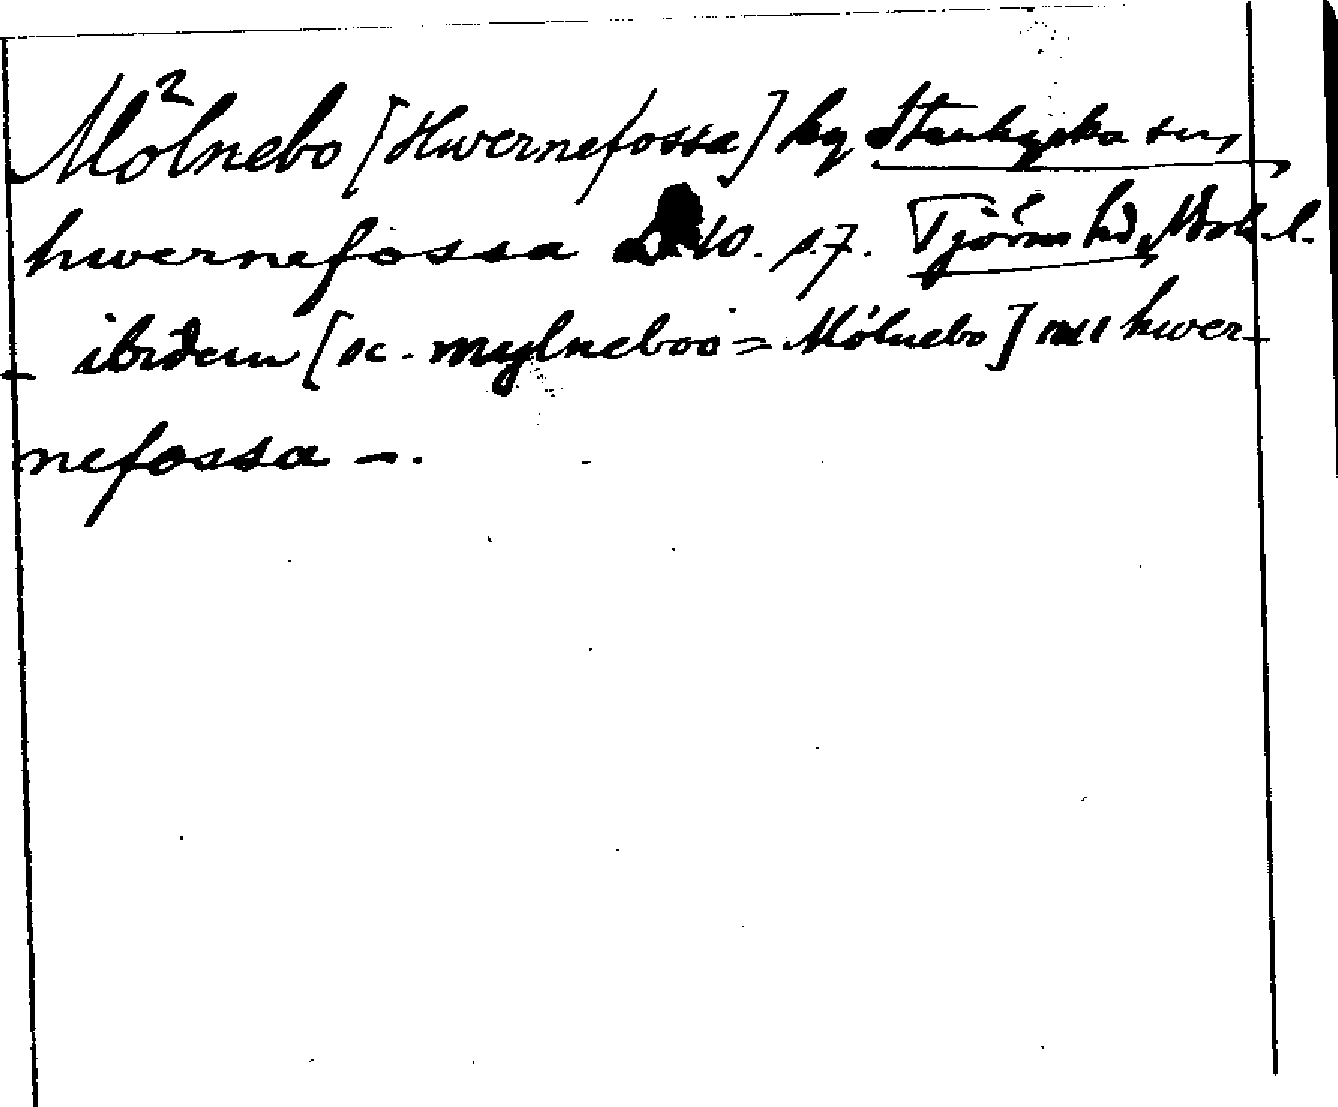 2
Mólnebo [Hwernefossa] hg Stenkyrka sn,
hwernefossa D 10. s. 7. Tjörns hd, Boh. l.
ibidem [sc. mylneboo = Mólnebo] hwer-
nefossa –.